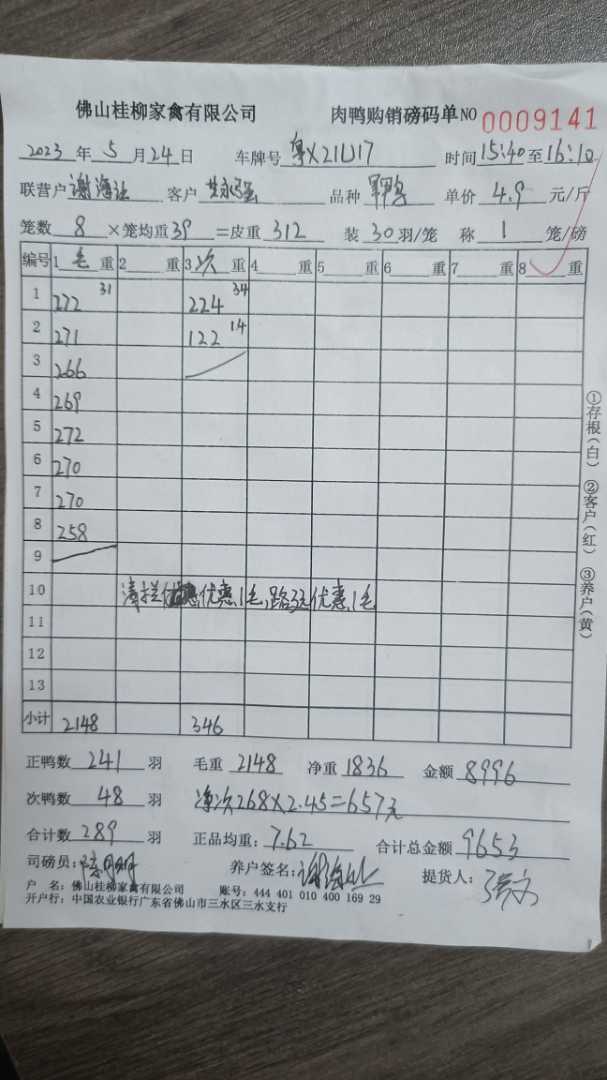 佛山桂柳家禽有限公司 肉鸭购销磅码单 NO 0009141
2023 年 5 月 24 日 车牌号 粤X21U17 时间 15:40 至 16:10
联营户 谢海 客户 品种 单价 4.9 元/斤
笼数 8 ×笼均重 39 =皮重 312 装 30 羽/笼 称 1 笼/磅
编号 1 毛 重 2 重 3 次 重 4 重 5 重 6 重 7 重 8 重
1 272 31 224 34
2 271 122 14
3 266
4 269
5 272
6 270
7 270
8 258
9
10 清拦 优惠1毛,路远优惠1毛
11
12
13
小计 2148 346
正鸭数 241 羽 毛重 2148 净重 1836 金额 8996
次鸭数 48 羽 净次268×2.45=657元
合计数 289 羽 正品均重: 7.62 合计总金额 9653
司磅员: 养户签名: 提货人:
户 名: 佛山桂柳家禽有限公司 账号: 444 401 010 400 169 29
开户行: 中国农业银行广东省佛山市三水区三水支行
①存根(白) ②客户(红) ③养户(黄)